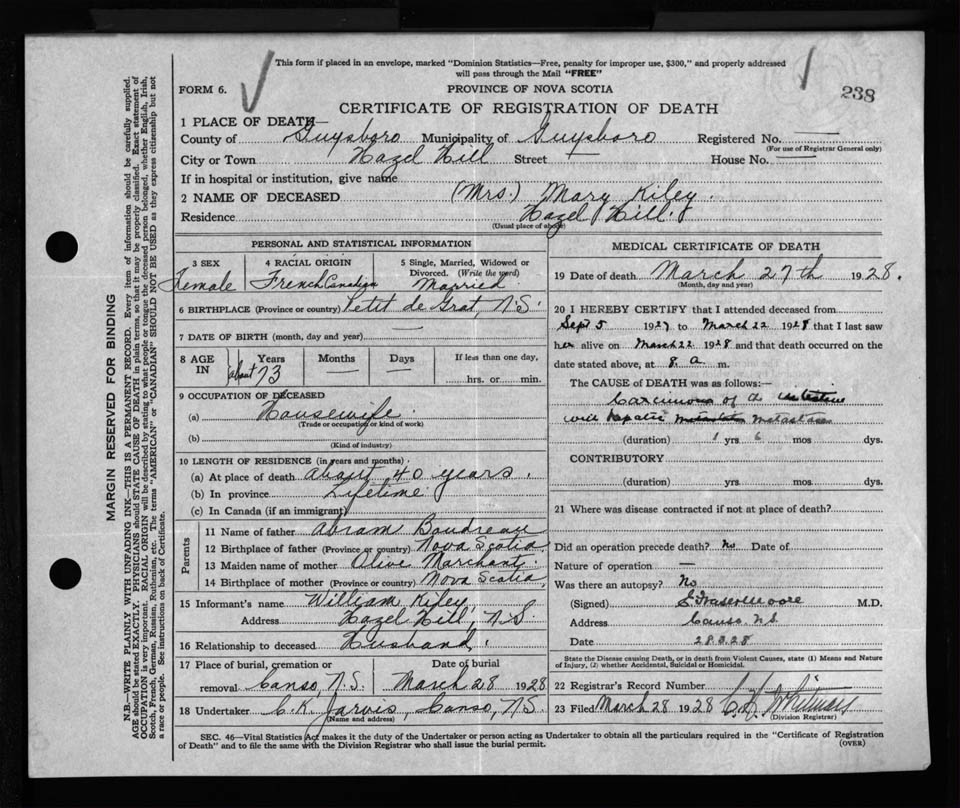 This form if placed in an envelope, marked "Dominion Statistics—Free, penalty for improper use, $300," and properly addressed
will pass through the Mail "FREE"
FORM 6.
PROVINCE OF NOVA SCOTIA
238
CERTIFICATE OF REGISTRATION OF DEATH
1 PLACE OF DEATH—
County of Guysboro Municipality of Guysboro Registered No.
(For use of Registrar General only)
City or Town Hazel Hill Street — House No.
If in hospital or institution, give name
2 NAME OF DECEASED (Mrs.) Mary Kiley.
Residence Hazel Hill.
(Usual place of abode)
PERSONAL AND STATISTICAL INFORMATION
3 SEX
Female
4 RACIAL ORIGIN
French Canadian
5 Single, Married, Widowed or
Divorced. (Write the word)
Married
6 BIRTHPLACE (Province or country) Petit de Grat, N.S.
7 DATE OF BIRTH (month, day and year)
8 AGE
IN
Years
about 73
Months
—
Days
—
If less than one day,
hrs. or min.
9 OCCUPATION OF DECEASED
(a) Housewife.
(Trade or occupation or kind of work)
(b)
(Kind of industry)
10 LENGTH OF RESIDENCE (in years and months)
(a) At place of death about 40 years.
(b) In province Lifetime.
(c) In Canada (if an immigrant)
Parents
11 Name of father Abram Boudreau
12 Birthplace of father (Province or country) Nova Scotia
13 Maiden name of mother Olive Marchant.
14 Birthplace of mother (Province or country) Nova Scotia,
15 Informant's name William Kiley,
Address Hazel Hill, N.S.
16 Relationship to deceased Husband,
17 Place of burial, cremation or
removal Canso, N.S.
Date of burial
March 28 1928
18 Undertaker C.K. Jarvis, Canso, N.S.
(Name and address)
MEDICAL CERTIFICATE OF DEATH
19 Date of death March 27th 1928.
(Month, day and year)
20 I HEREBY CERTIFY that I attended deceased from
Sept 5 1927 to March 22 1928 that I last saw
her alive on March 22 1928 and that death occurred on the
date stated above, at 8. a. m.
The CAUSE of DEATH was as follows:—
Carcinoma of intestine
with hepatic metastases
(duration) 1 yrs 6 mos dys.
CONTRIBUTORY
(duration) yrs. mos. dys.
21 Where was disease contracted if not at place of death?
Did an operation precede death? No Date of
Nature of operation —
Was there an autopsy? No
(Signed) S. Fraser Moore M.D.
Address Canso N.S.
Date 28.3.28
State the Disease causing Death, or in death from Violent Causes, state (1) Means and Nature
of Injury, (2) whether Accidental, Suicidal or Homicidal.
22 Registrar's Record Number
23 Filed March 28 1928 C.H. Whitman
(Division Registrar)
SEC. 46—Vital Statistics Act makes it the duty of the Undertaker or person acting as Undertaker to obtain all the particulars required in the "Certificate of Registration
of Death" and to file the same with the Division Registrar who shall issue the burial permit.
(OVER)
MARGIN RESERVED FOR BINDING
N.B.—WRITE PLAINLY WITH UNFADING INK—THIS IS A PERMANENT RECORD. Every item of information should be carefully supplied.
AGE should be stated EXACTLY. PHYSICIANS should STATE CAUSE OF DEATH in plain terms, so that it may be properly classified. Exact statement of
OCCUPATION is very important. RACIAL ORIGIN will be described by stating to what people or tongue the deceased person belonged, whether English, Irish,
Scotch, French, German, Russian, Ruthenian, etc. The terms "AMERICAN" or "CANADIAN" SHOULD NOT BE USED as they express citizenship but not
a race or people. See instructions on back of Certificate.